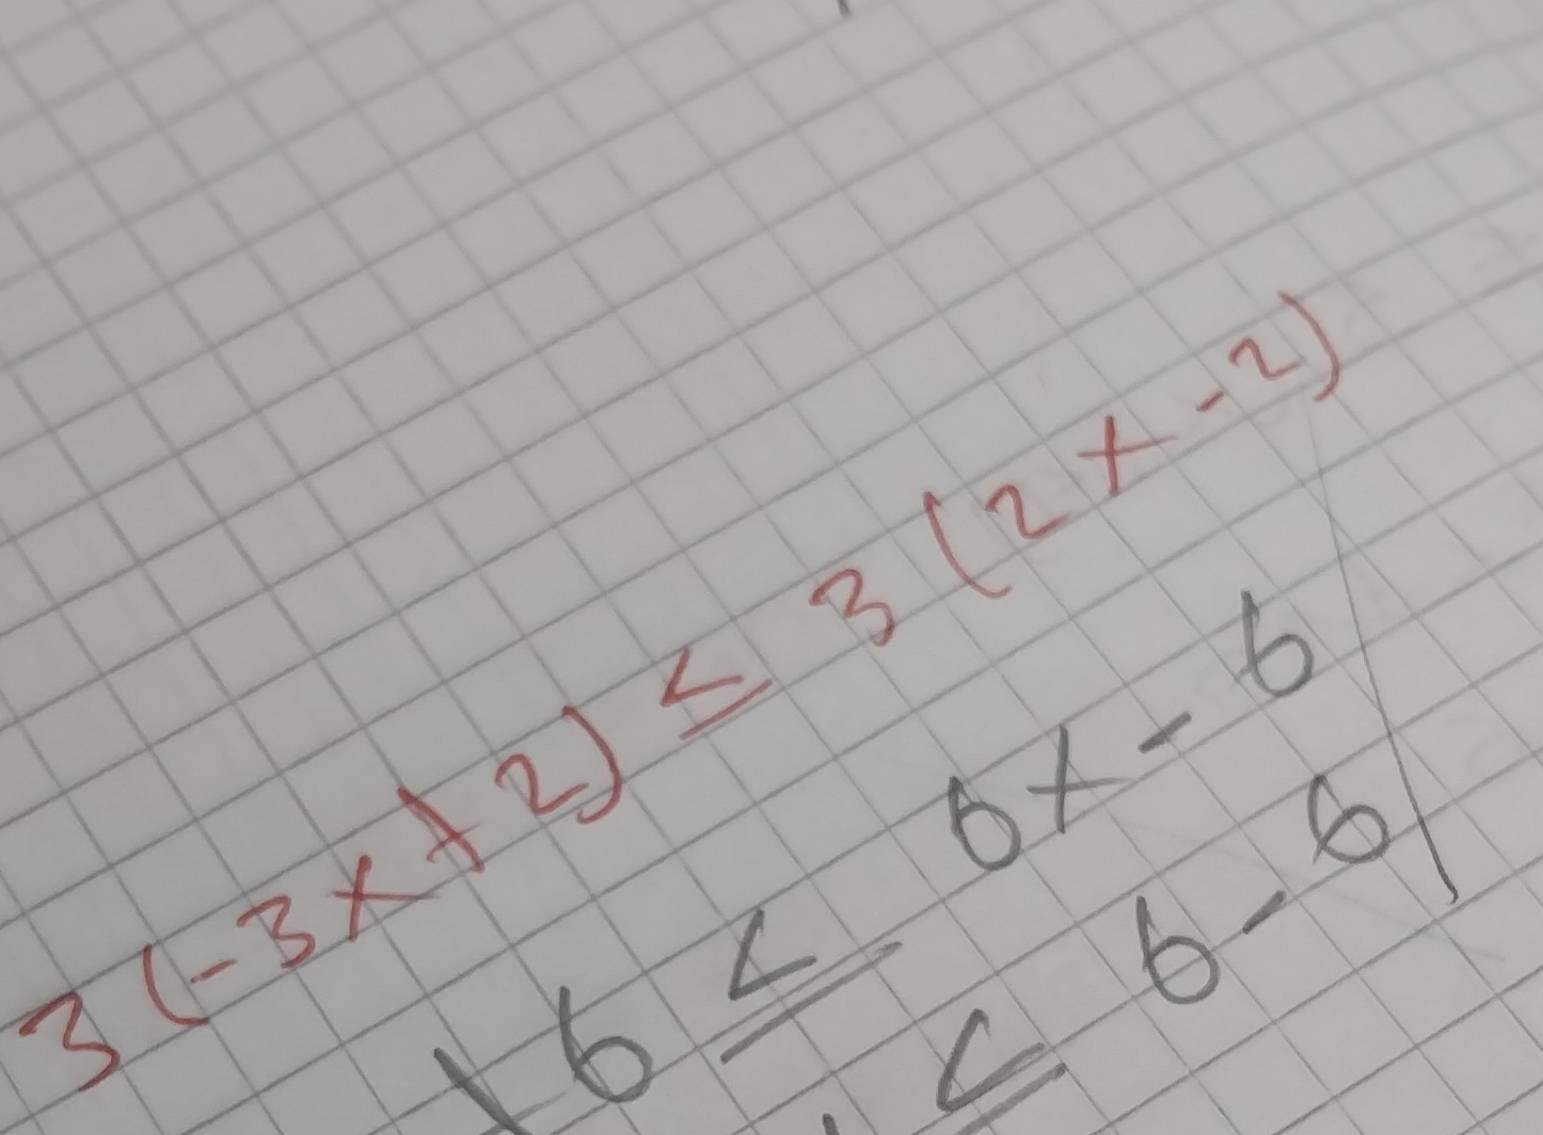 3(-3x+2) ≤ 3(2x-2)
+6 ≤ 6x-6
≤ 6-6